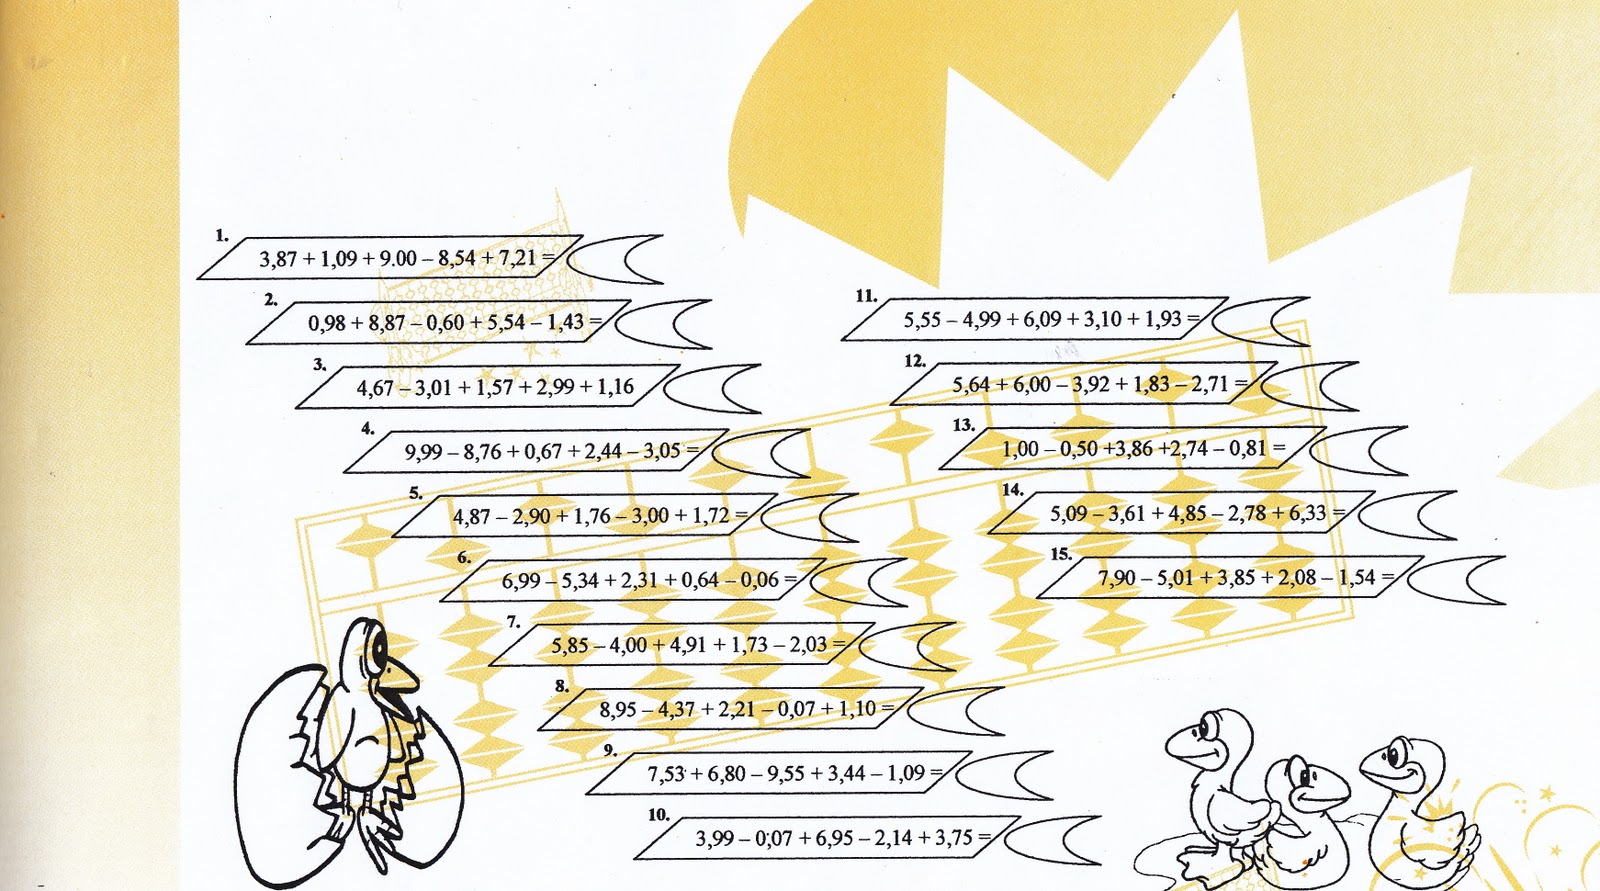 1. 3,87 + 1,09 + 9.00 – 8,54 + 7,21 =
2. 0,98 + 8,87 – 0,60 + 5,54 – 1,43 =
3. 4,67 – 3,01 + 1,57 + 2,99 + 1,16
4. 9,99 – 8,76 + 0,67 + 2,44 – 3,05 =
5. 4,87 – 2,90 + 1,76 – 3,00 + 1,72 =
6. 6,99 – 5,34 + 2,31 + 0,64 – 0,06 =
7. 5,85 – 4,00 + 4,91 + 1,73 – 2,03 =
8. 8,95 – 4,37 + 2,21 – 0,07 + 1,10 =
9. 7,53 + 6,80 – 9,55 + 3,44 – 1,09 =
10. 3,99 – 0,07 + 6,95 – 2,14 + 3,75 =
11. 5,55 – 4,99 + 6,09 + 3,10 + 1,93 =
12. 5,64 + 6,00 – 3,92 + 1,83 – 2,71 =
13. 1,00 – 0,50 +3,86 +2,74 – 0,81 =
14. 5,09 – 3,61 + 4,85 – 2,78 + 6,33 =
15. 7,90 – 5,01 + 3,85 + 2,08 – 1,54 =